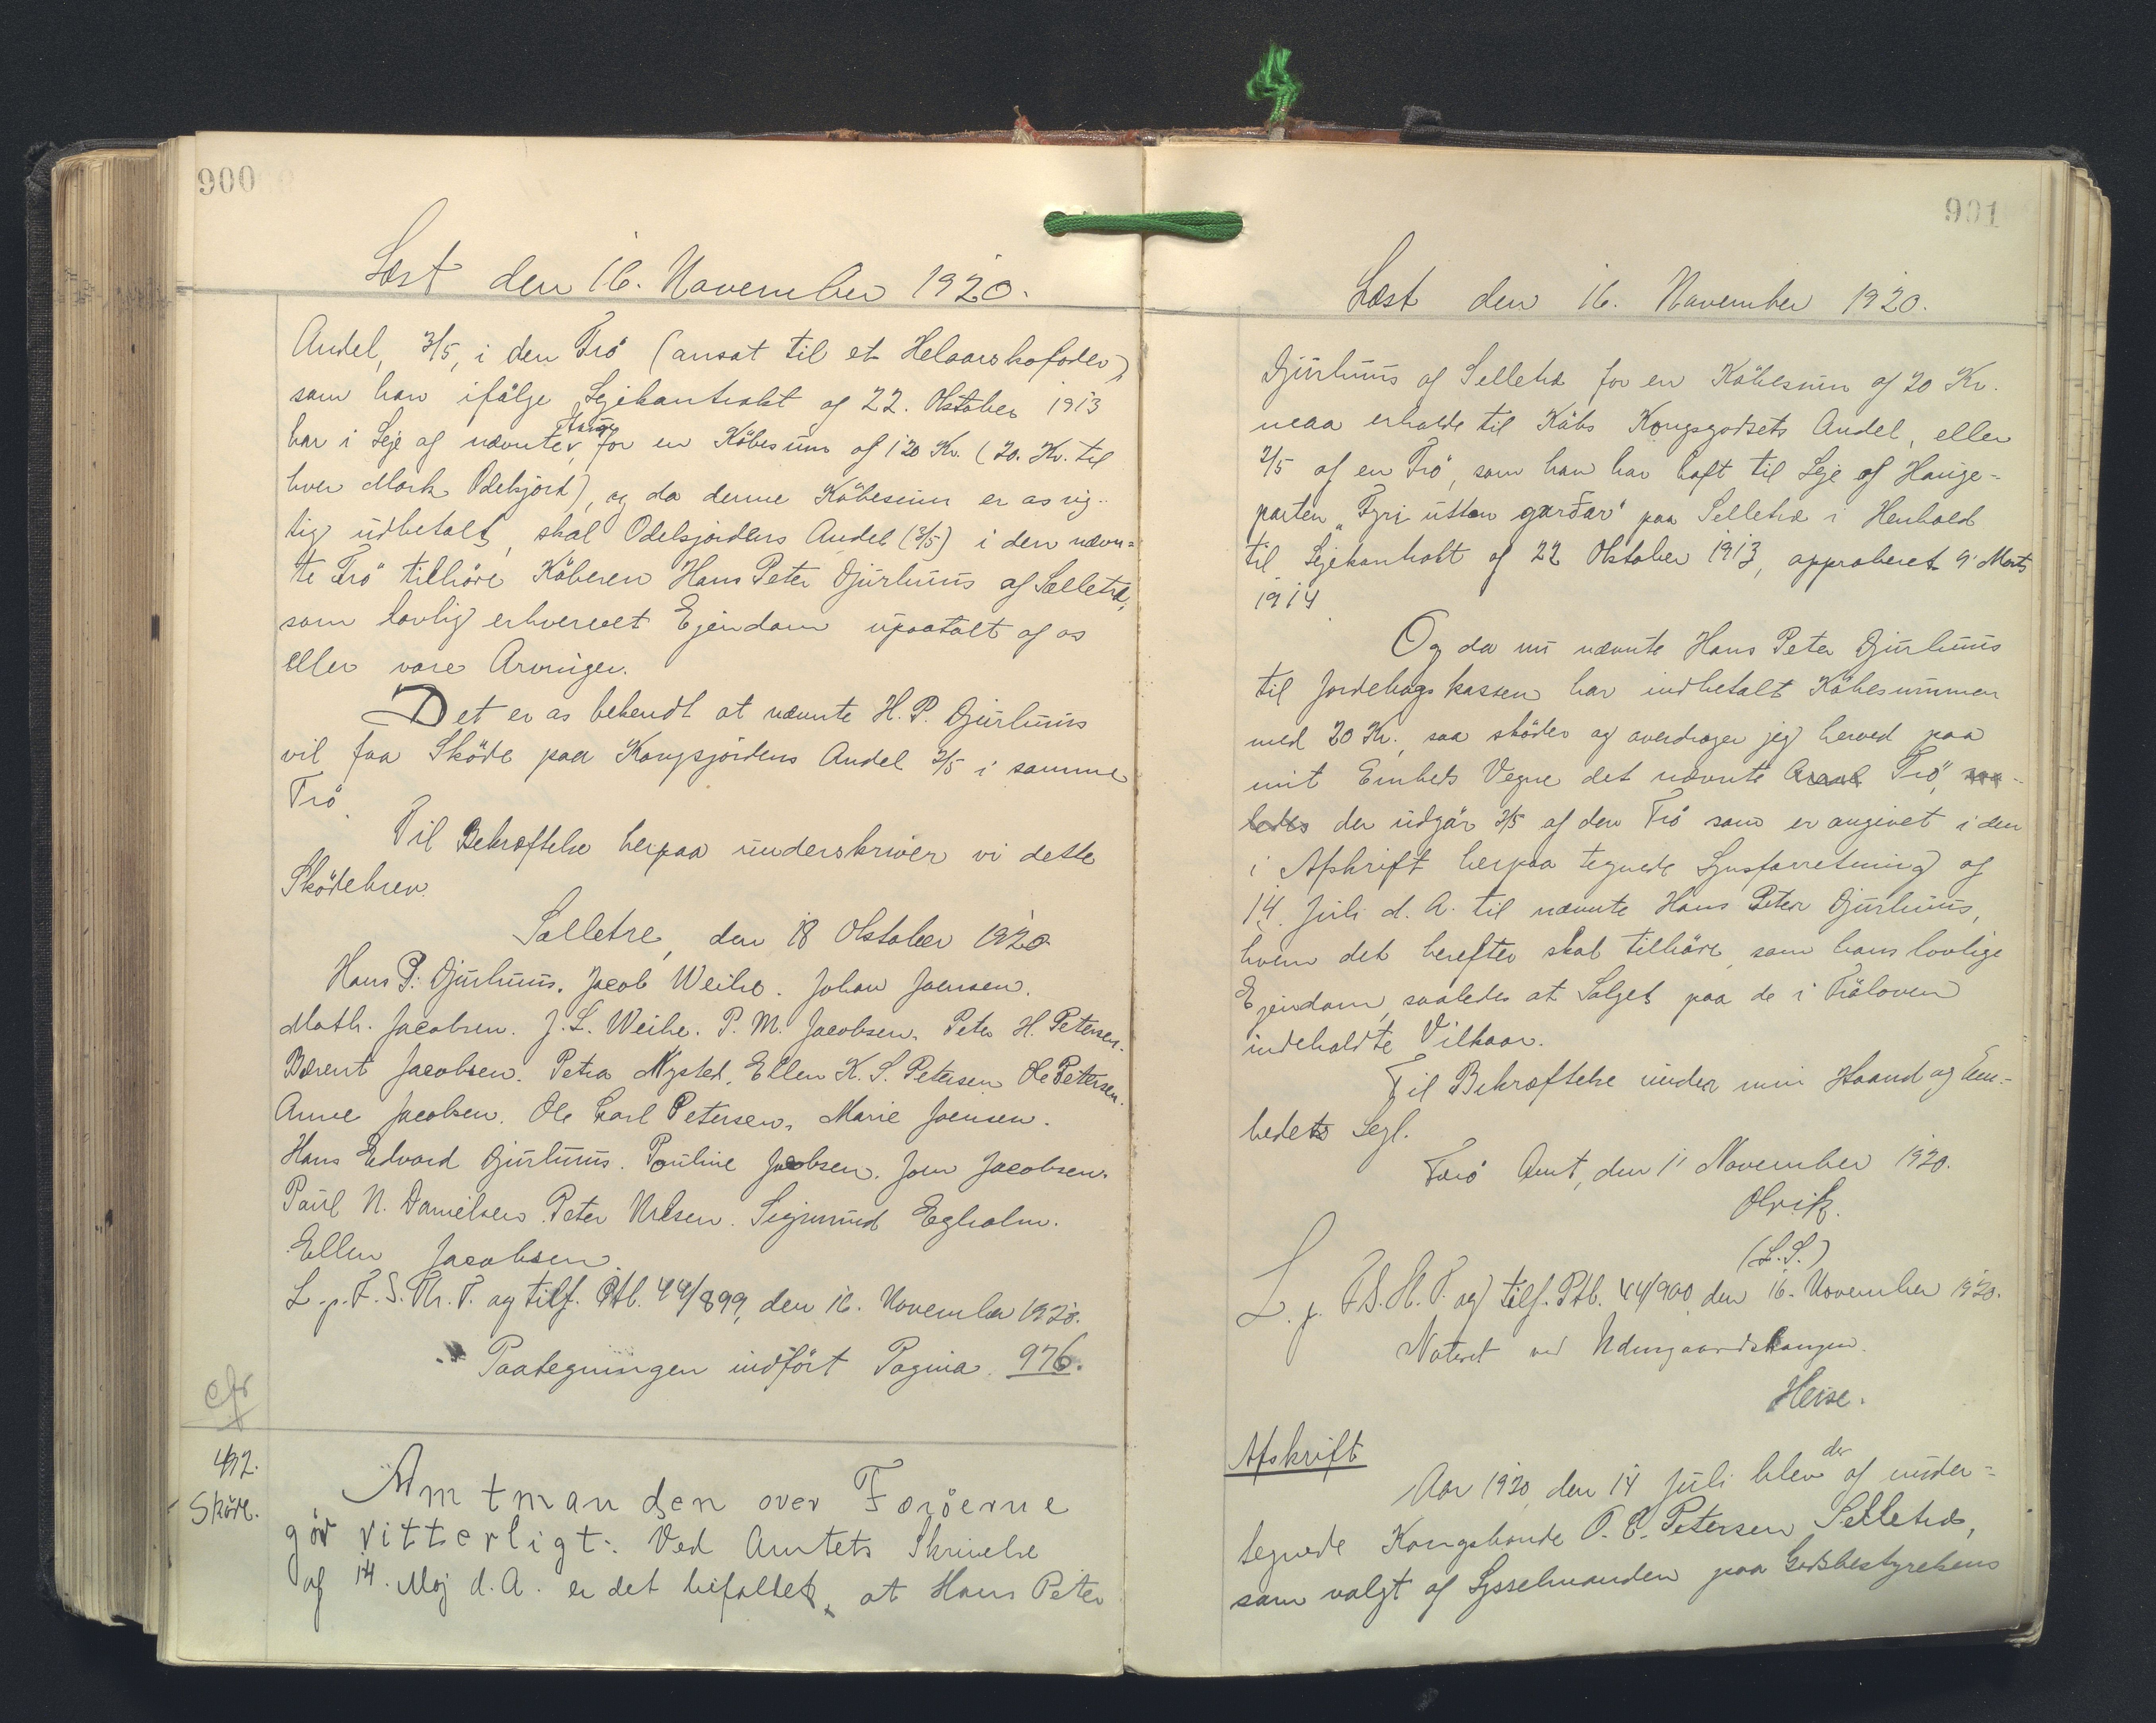 900
Læst den 16. November 1920.
Andel, 3/5, i den Trö (ansat til et Helaarskofoder)
som han ifölge Lejekontrakt af 22. Oktober 1913
har i Leje af nævnte Hauge for en Köbesum af 120 Kr. (20. Kr. til
hver Mark Odelsjord), og da denne Köbesum er os rig-
tig udbetalt, skal Odelsjordens Andel (3/5) i den nævn=
te Trö tilhöre Köberen Hans Peter Djurhuus af Selletræ,
som lovlig erhvervet Ejendom upaatalt af os
eller vore Arvinger.
Det er os bekendt at nævnte H. P. Djurhuus
vil faa Sköde paa Kongsjordens Andel 2/5 i samme
Trö.
Til Bekræftelse herpaa underskriver vi dette
Sködebrev.
Selletræ, den 18 Oktober 1920.
Hans P. Djurhuus. Jacob Weihe. Johan Joensen.
Math. Jacobsen. J. L. Weihe. P. M. Jacobsen. Peter H. Petersen.
Berent Jacobsen. Petra Nysted. Ellen K. S. Petersen Ole Petersen.
Anne Jacobsen. Ole Carl Petersen. Marie Joensen.
Hans Edvard Djurhuus. Pouline Jacobsen. Joen Jacobsen.
Paul N. Danielsen. Peter Nielsen. Sigmund Egholm.
Ellen Jacobsen.
L. p. F. S. Th. T. og tilf. Ptb. 44/899, den 16. November 1920.
Paategningen indfört Pagina. 976.
cfr
492.
Sköde.
Amtmanden over Færöerne
gör vitterligt: Ved Amtets Skrivelse
af 14. Maj d. A. er det bifaldet, at Hans Peter
901
Læst den 16. November 1920.
Djurhuus af Selletræ for en Köbesum af 20 Kr.
maa erholde til Köbs Kongsgodsets Andel, eller
2/5 af en Trö, som han har haft til Leje af Hauge-
parten "Fyri uttan garðar" paa Selletræ i Henhold
til Lejekontrakt af 22 Oktober 1913, approberet 9 Marts
1914
Og da nu nævnte Hans Peter Djurhuus
til Jordebogskassen har indbetalt Köbesummen
med 20 Kr., saa sköder og overdrager jeg herved paa
mit Embeds Vegne det nævnte Areal Trö, saa-
ledes der udgör 2/5 af den Trö som er angivet i den
i Afskrift herpaa tegnede Synsforretning af
14. Juli d. A. til nævnte Hans Peter Djurhuus,
hvem det herefter skal tilhöre, som hans lovlige
Ejendom, saaledes at Salget paa de i Tröloven
indeholdte Vilkaar.
Til Bekræftelse under min Haand og Em-
bedets Segl.
Færö Amt, den 11 November 1920.
Olrik.
(L. S.)
L. p. F. S. Th. T. og tilf. Ptb. 44/900 den 16. November 1920.
Noteret ved
Heise.
Afskrift
Aar 1920, den 14 Juli blev der af under=
tegnede Kongsbonde O. C. Petersen Selletræ,
som valgt af Sysselmanden paa Godsbestyrelsens